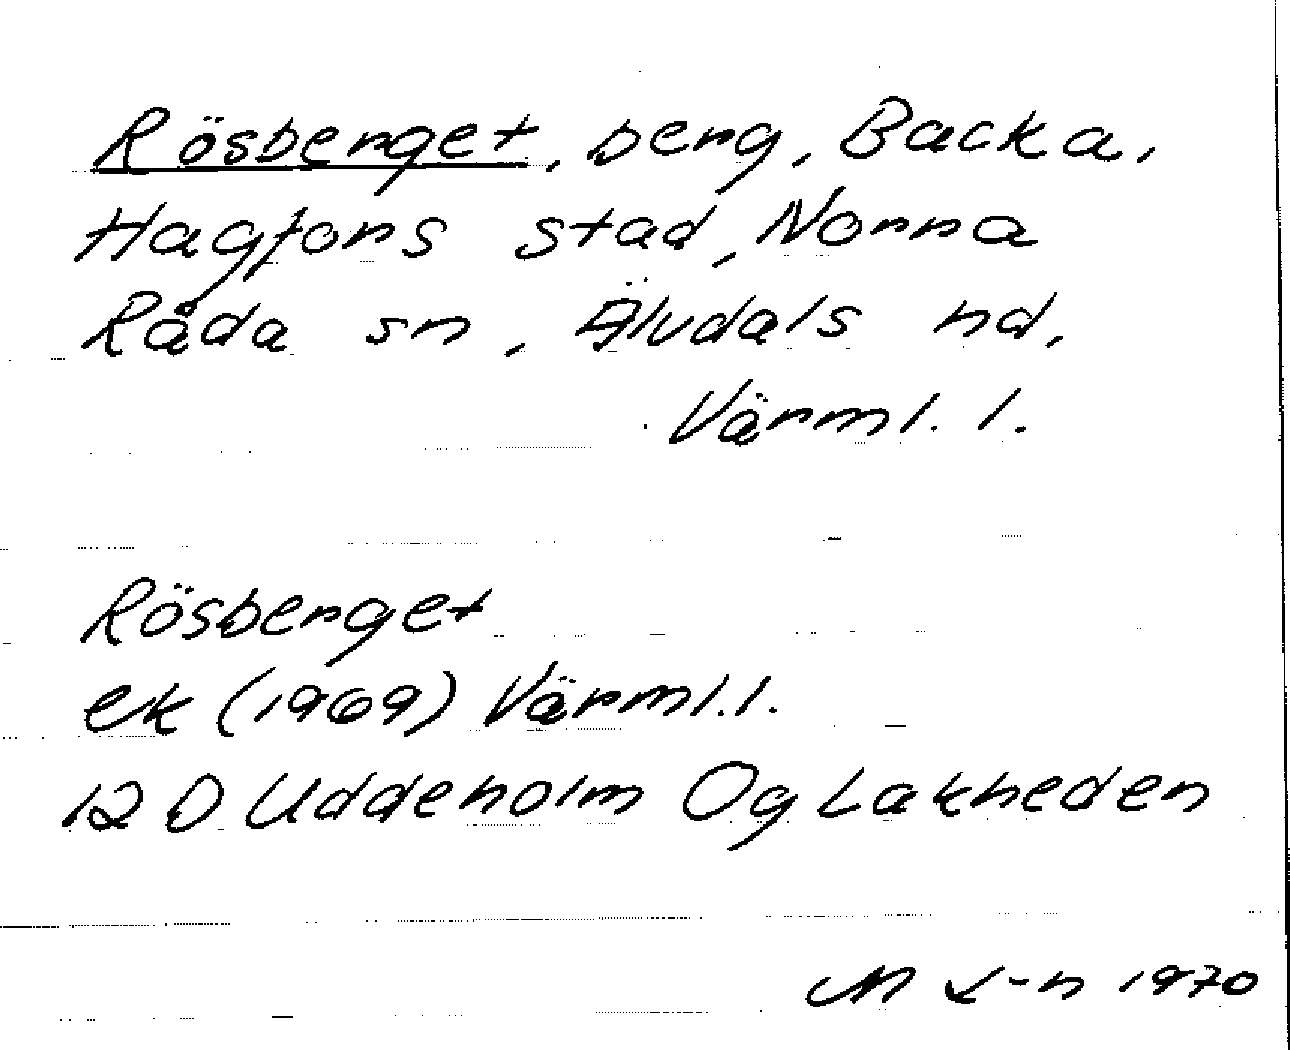 Rösberget, berg, Backa,
Hagfors stad, Norra
Råda sn, Älvdals hd,
Värml. l.
Rösberget
ek (1969) Värml.l.
12 D Uddeholm Og Lakheden
M L-n 1970